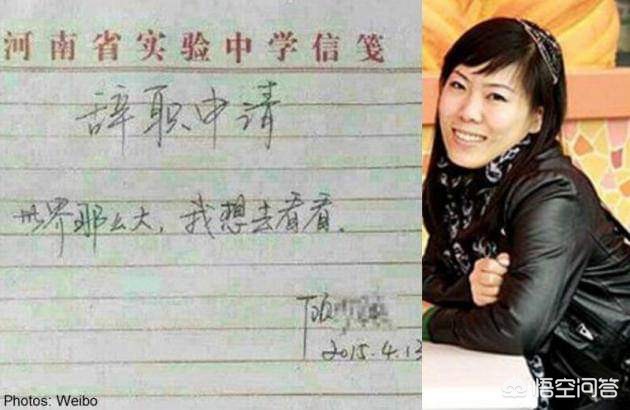 河南省实验中学信笺
辞职申请
世界那么大，我想去看看。
顾
2015.4.13
Photos: Weibo
悟空问答